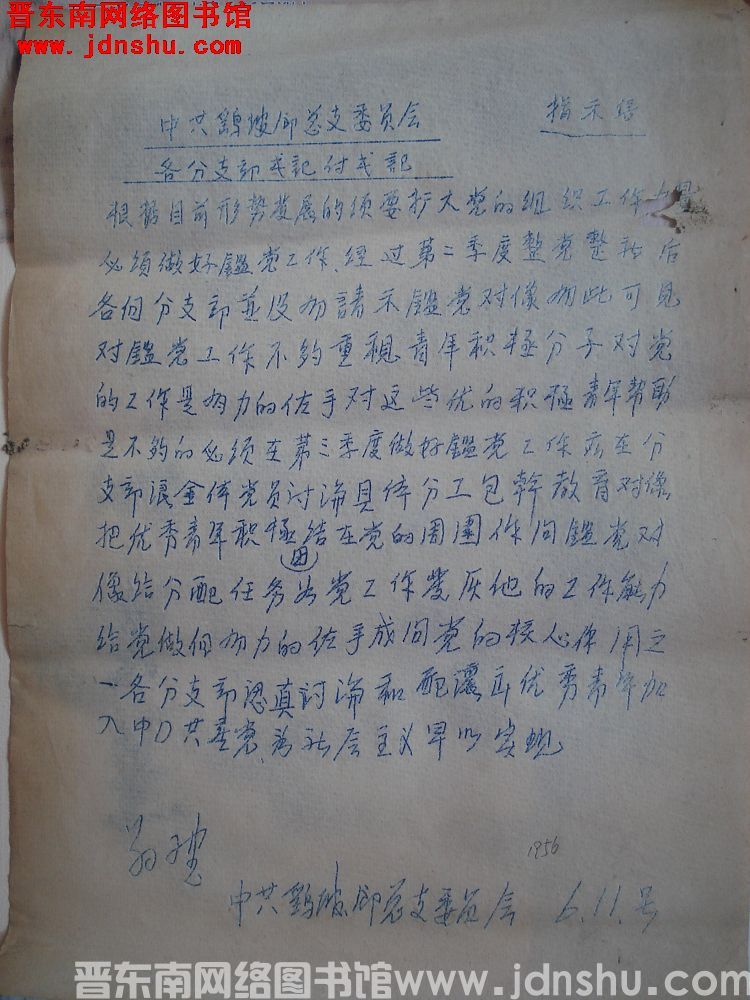 晋东南网络图书馆
www.jdnshu.com
中共鷄坡鄉总支委员会 指示信
各分支部书記付书記
根据目前形势發展的须要扩大党的组织工作
必须做好鑑党工作、经过第二季度整党整社后
各何分支部並没有請示鑑党对像如此可見
对鑑党工作不夠重視青年积極分子对党
的工作是有力的佐手对这些优的积極青年帮助
是不夠的必须在第三季度做好鑑党工作应在分
支部滚全体党员討論具体分工包幹教育对像
把优秀青年积極结在党的周圍作间鑑党对
团
像给分配任务为党工作發灰他的工作能力
给党做個有力的佐手成间党的核心作用之
一各分支部認真討論和配濃立优秀青年加
入中共産党、为社会主义早以实現
1956
中共鷄坡鄉总支委员会 6.11.号
晋东南网络图书馆www.jdnshu.com